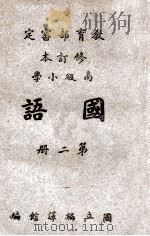 定審部育教
本訂修
學小級高
語國
冊二第
編館譯編立國